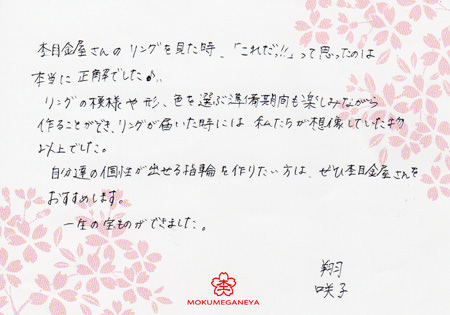 杢目金屋さんの リングを見た時、「これだっ!!」って思ったのは
本当に正解でした♪。
リングの模様や形、色を選ぶ準備期間も楽しみながら
作ることができ、リングが届いた時には 私たちが想像していた物
以上でした。
自分達の個性が出せる指輪を作りたい方は、ぜひ杢目金屋さんを
おすすめします。
一生の宝ものができました。
翔
咲子
杢
MOKUMEGANEYA